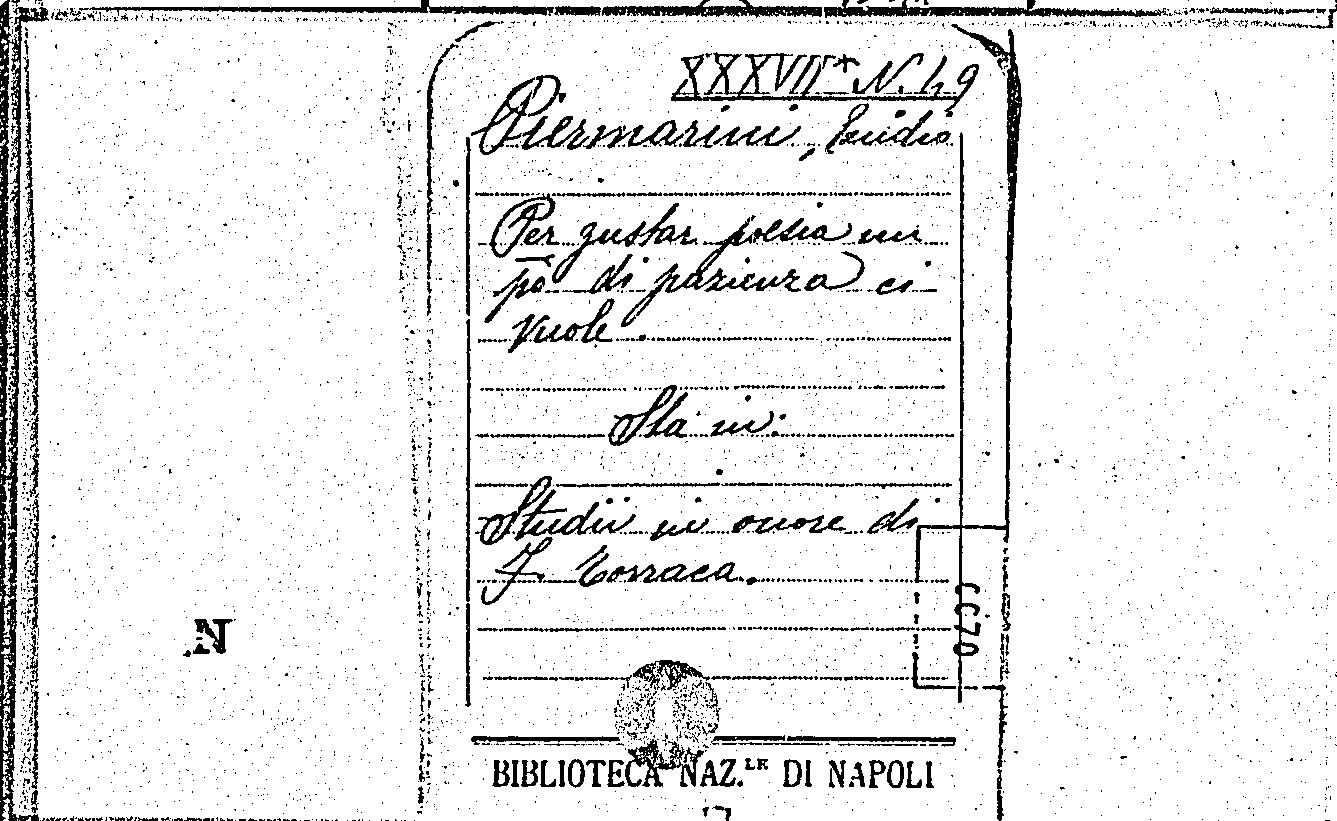 XXXVII* N. 49
Piermarini, Enidio
Per gustar poesia un
pò di pazienza ci
vuole.
Sta in:
Studii in onore di
F. Torraca.
N
6670
BIBLIOTECA NAZ.LE DI NAPOLI